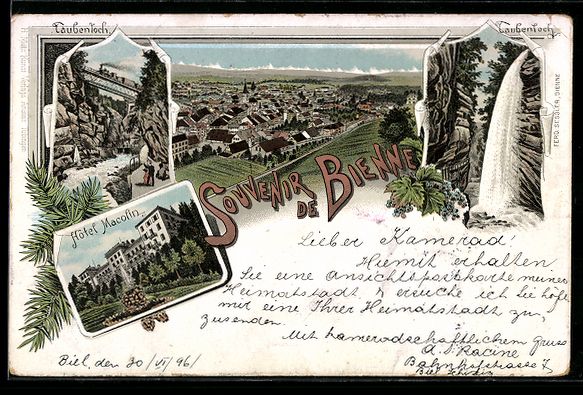 Taubenloch
Taubenloch
FERD. SIEGLER, BIENNE
SOUVENIR
DE BIENNE
Hôtel Macolin
Lieber Kamerad!
Hiermit erhalten
Sie eine ansichtspostkarte meiner
Heimatstadt & ersuche ich Sie höfl.
mir eine Ihrer Heimatstadt zu
zusenden.
Mit kameradschaftlichem Gruss
A. Racine
Bahnhofstrasse 7
Biel Schweiz
Biel, den 30/VI/96/